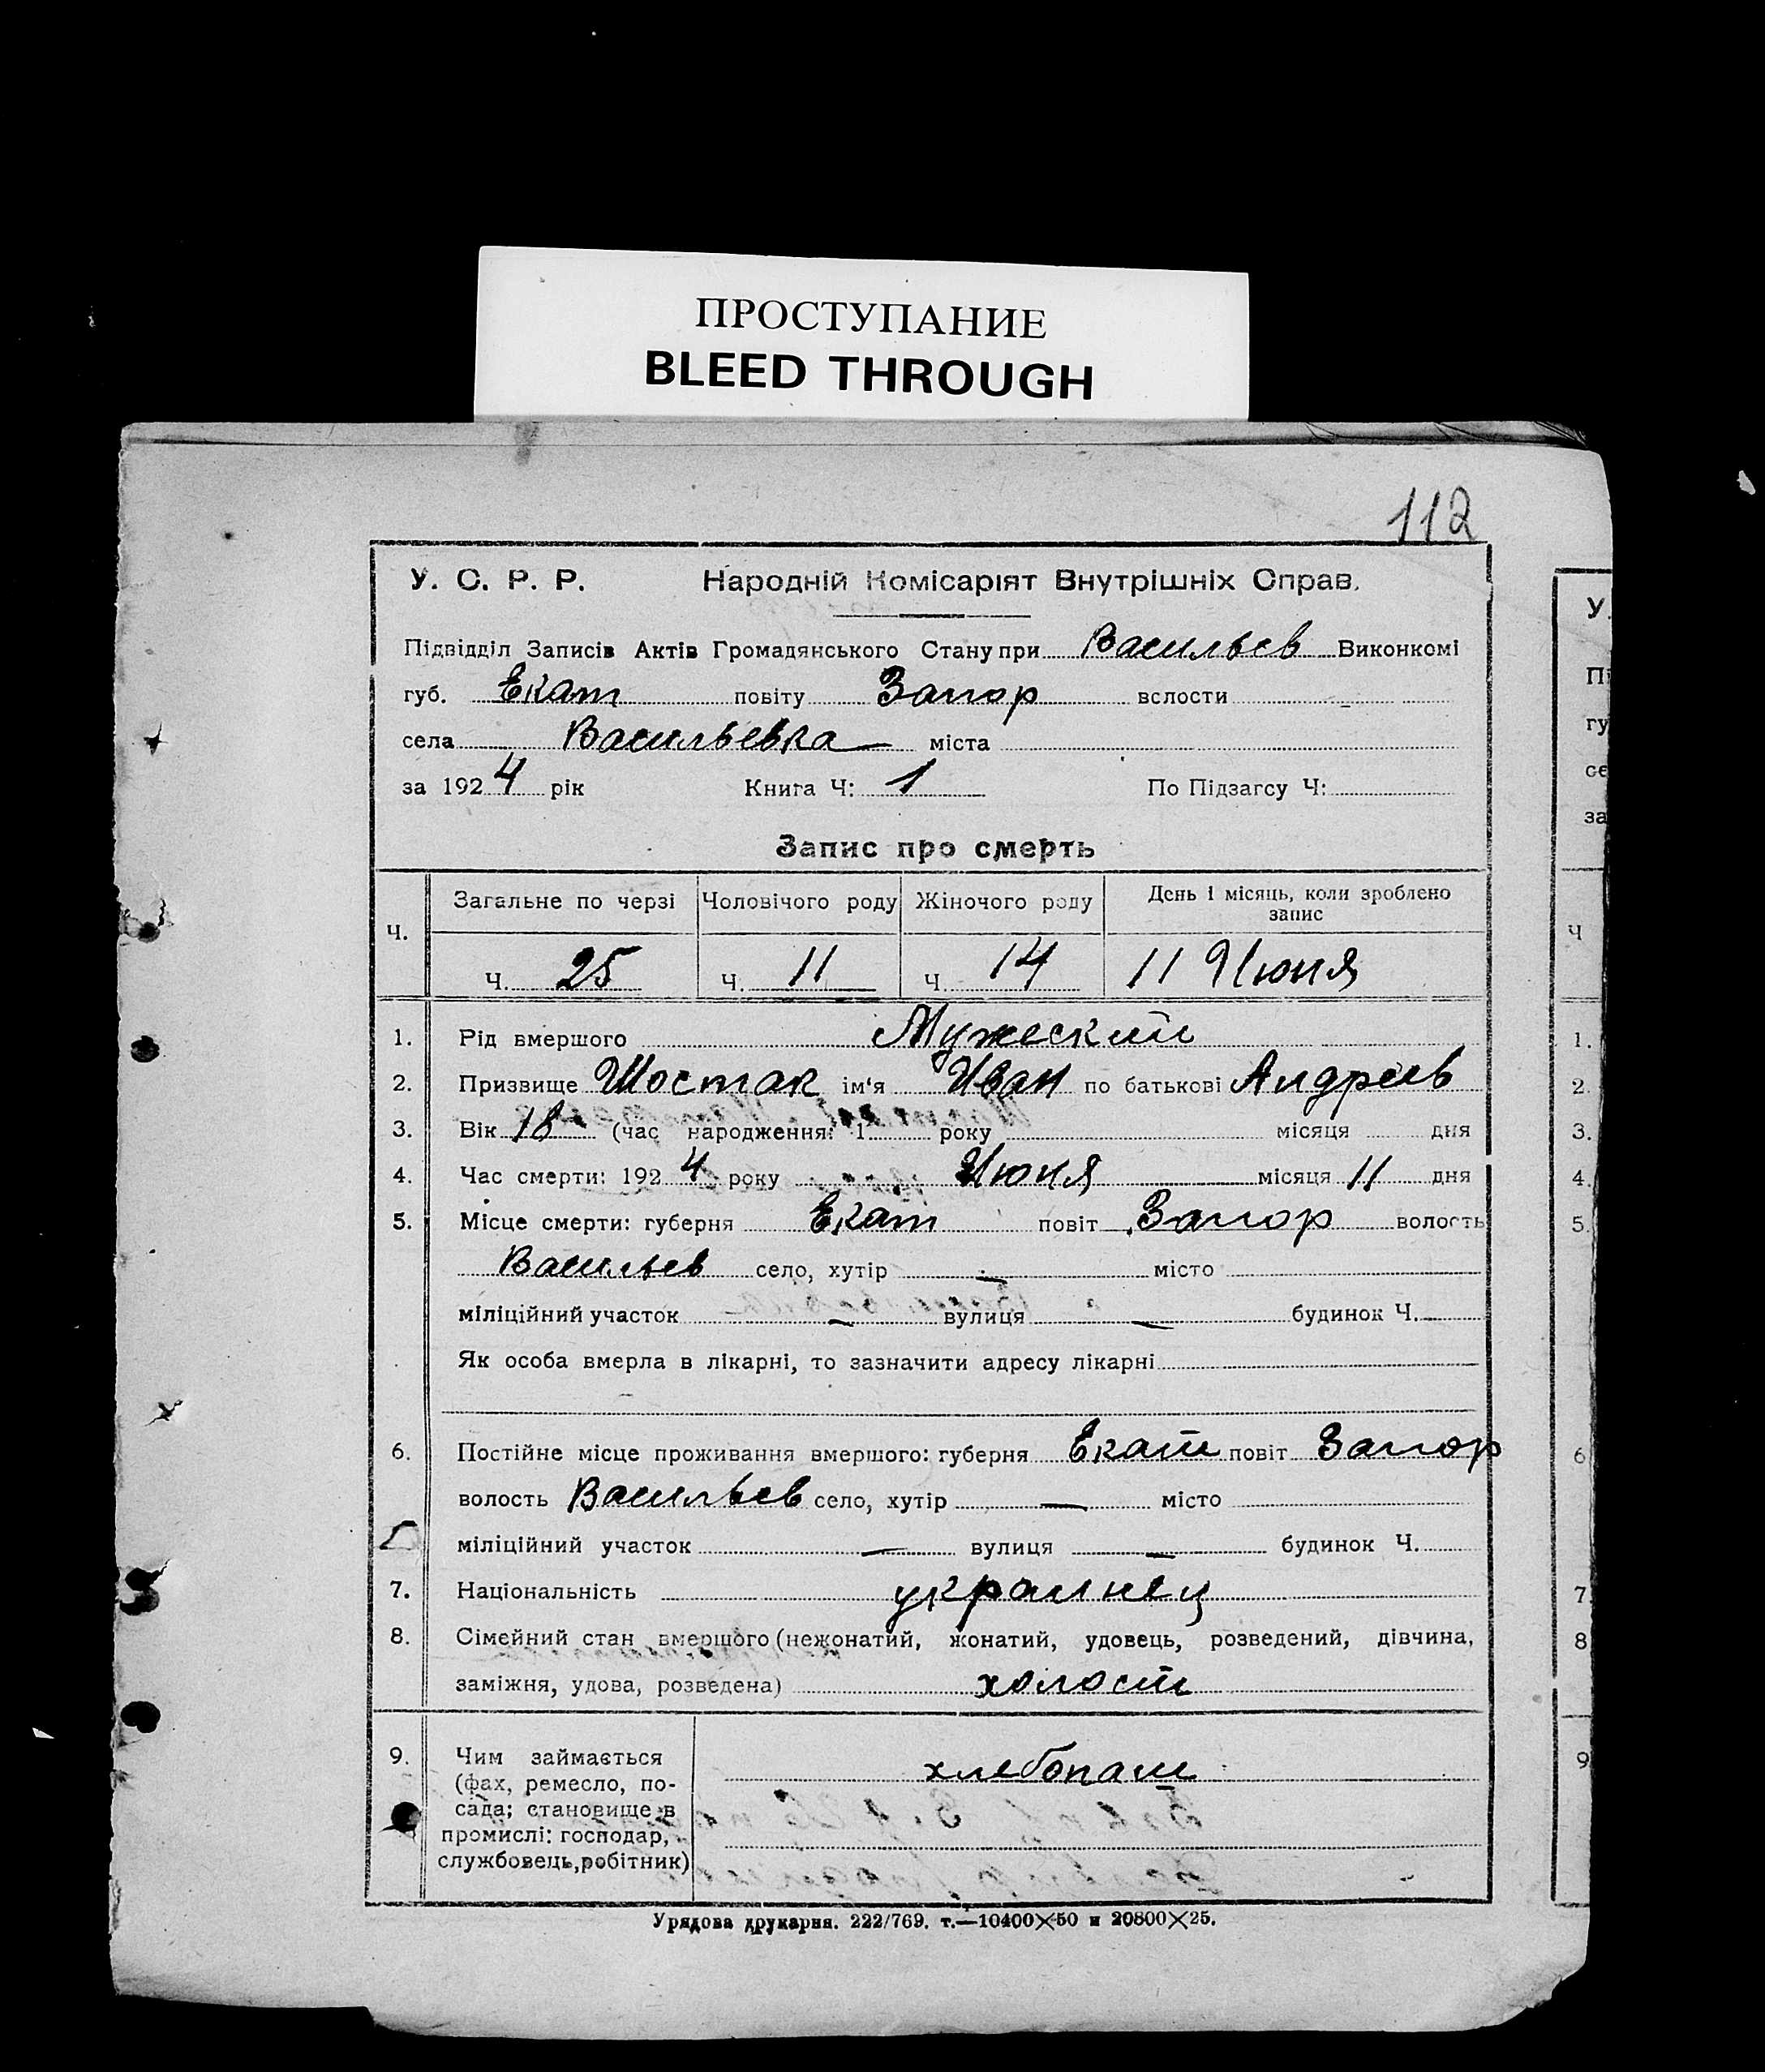 ПРОСТУПАНИЕ
BLEED THROUGH
112
У. С. Р. Р. Народній Комісаріят Внутрішніх Справ.
Підвідділ Записів Актів Громадянського Стану при Васильев Виконкомі
губ. Екат повіту Запор вслости
села Васильевка міста
за 1924 рік Книга Ч: 1 По Підзагсу Ч:
Запис про смерть
Ч. Загальне по черзі Чоловічого роду Жіночого роду День і місяць, коли зроблено
запис
Ч. 25 Ч. 11 Ч. 14 11 Июня
1. Рід вмершого Мужеский
2. Призвище Шостак ім'я Иван по батькові Андреев
3. Вік 18 (час народження: 1 року місяця дня
4. Час смерти: 1924 року Июня місяця 11 дня
5. Місце смерти: губерня Екат повіт Запор волость
Васильев село, хутір — місто
міліційний участок — вулиця — будинок Ч.
Як особа вмерла в лікарні, то зазначити адресу лікарні
6. Постійне місце проживання вмершого: губерня Екат повіт Запор
волость Васильев село, хутір — місто
міліційний участок — вулиця — будинок Ч.
7. Національність украинец
8. Сімейний стан вмершого (нежонатий, жонатий, удовець, розведений, дівчина,
заміжня, удова, розведена) холост
9. Чим займається хлебопаш
(фах, ремесло, по-
сада; становище в
промислі: господар,
службовець, робітник)
Урядова друкарня. 222/769. т.—10400×50 и 20800×25.
У.
Пі
гу
се
за
Ч
1.
2
3.
4.
5.
6
7
8
9